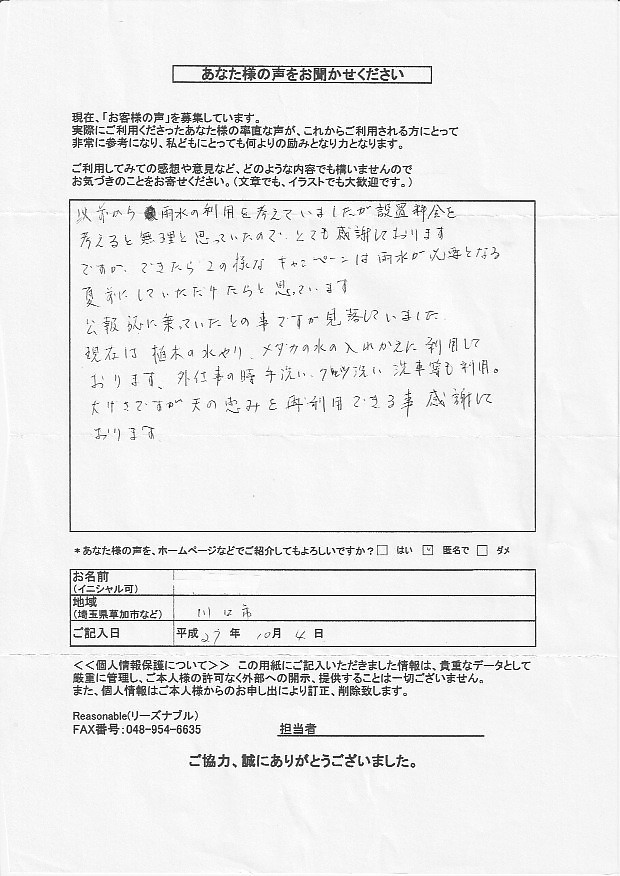 あなた様の声をお聞かせください
現在、「お客様の声」を募集しています。
実際にご利用くださったあなた様の率直な声が、これからご利用される方にとって
非常に参考になり、私どもにとっても何よりの励みとなり力となります。
ご利用してみての感想や意見など、どのような内容でも構いませんので
お気づきのことをお寄せください。（文章でも、イラストでも大歓迎です。）
以前から雨水の利用を考えていましたが設置料金を
考えると無理と思っていたので、とても感謝しております
ですが、できたらこの様なキャンペーンは雨水が必要となる
夏前にしていただけたらと思っています
公報誌に乗っていたとの事ですが見落していました
現在は植木の水やり、メダカの水の入れかえに利用して
おります、外仕事の時手洗い、クツ洗い洗車等も利用。
大げさですが天の恵みを再利用できる事感謝して
おります
*あなた様の声を、ホームページなどでご紹介してもよろしいですか？□ はい ☑ 匿名で □ ダメ
お名前
（イニシャル可）
地域
（埼玉県草加市など） 川口市
ご記入日 平成27年 10月 4日
<<個人情報保護について>> この用紙にご記入いただきました情報は、貴重なデータとして
厳重に管理し、ご本人様の許可なく外部への開示、提供することは一切ございません。
また、個人情報はご本人様からのお申し出により訂正、削除致します。
Reasonable(リーズナブル)
FAX番号：048-954-6635 担当者
ご協力、誠にありがとうございました。